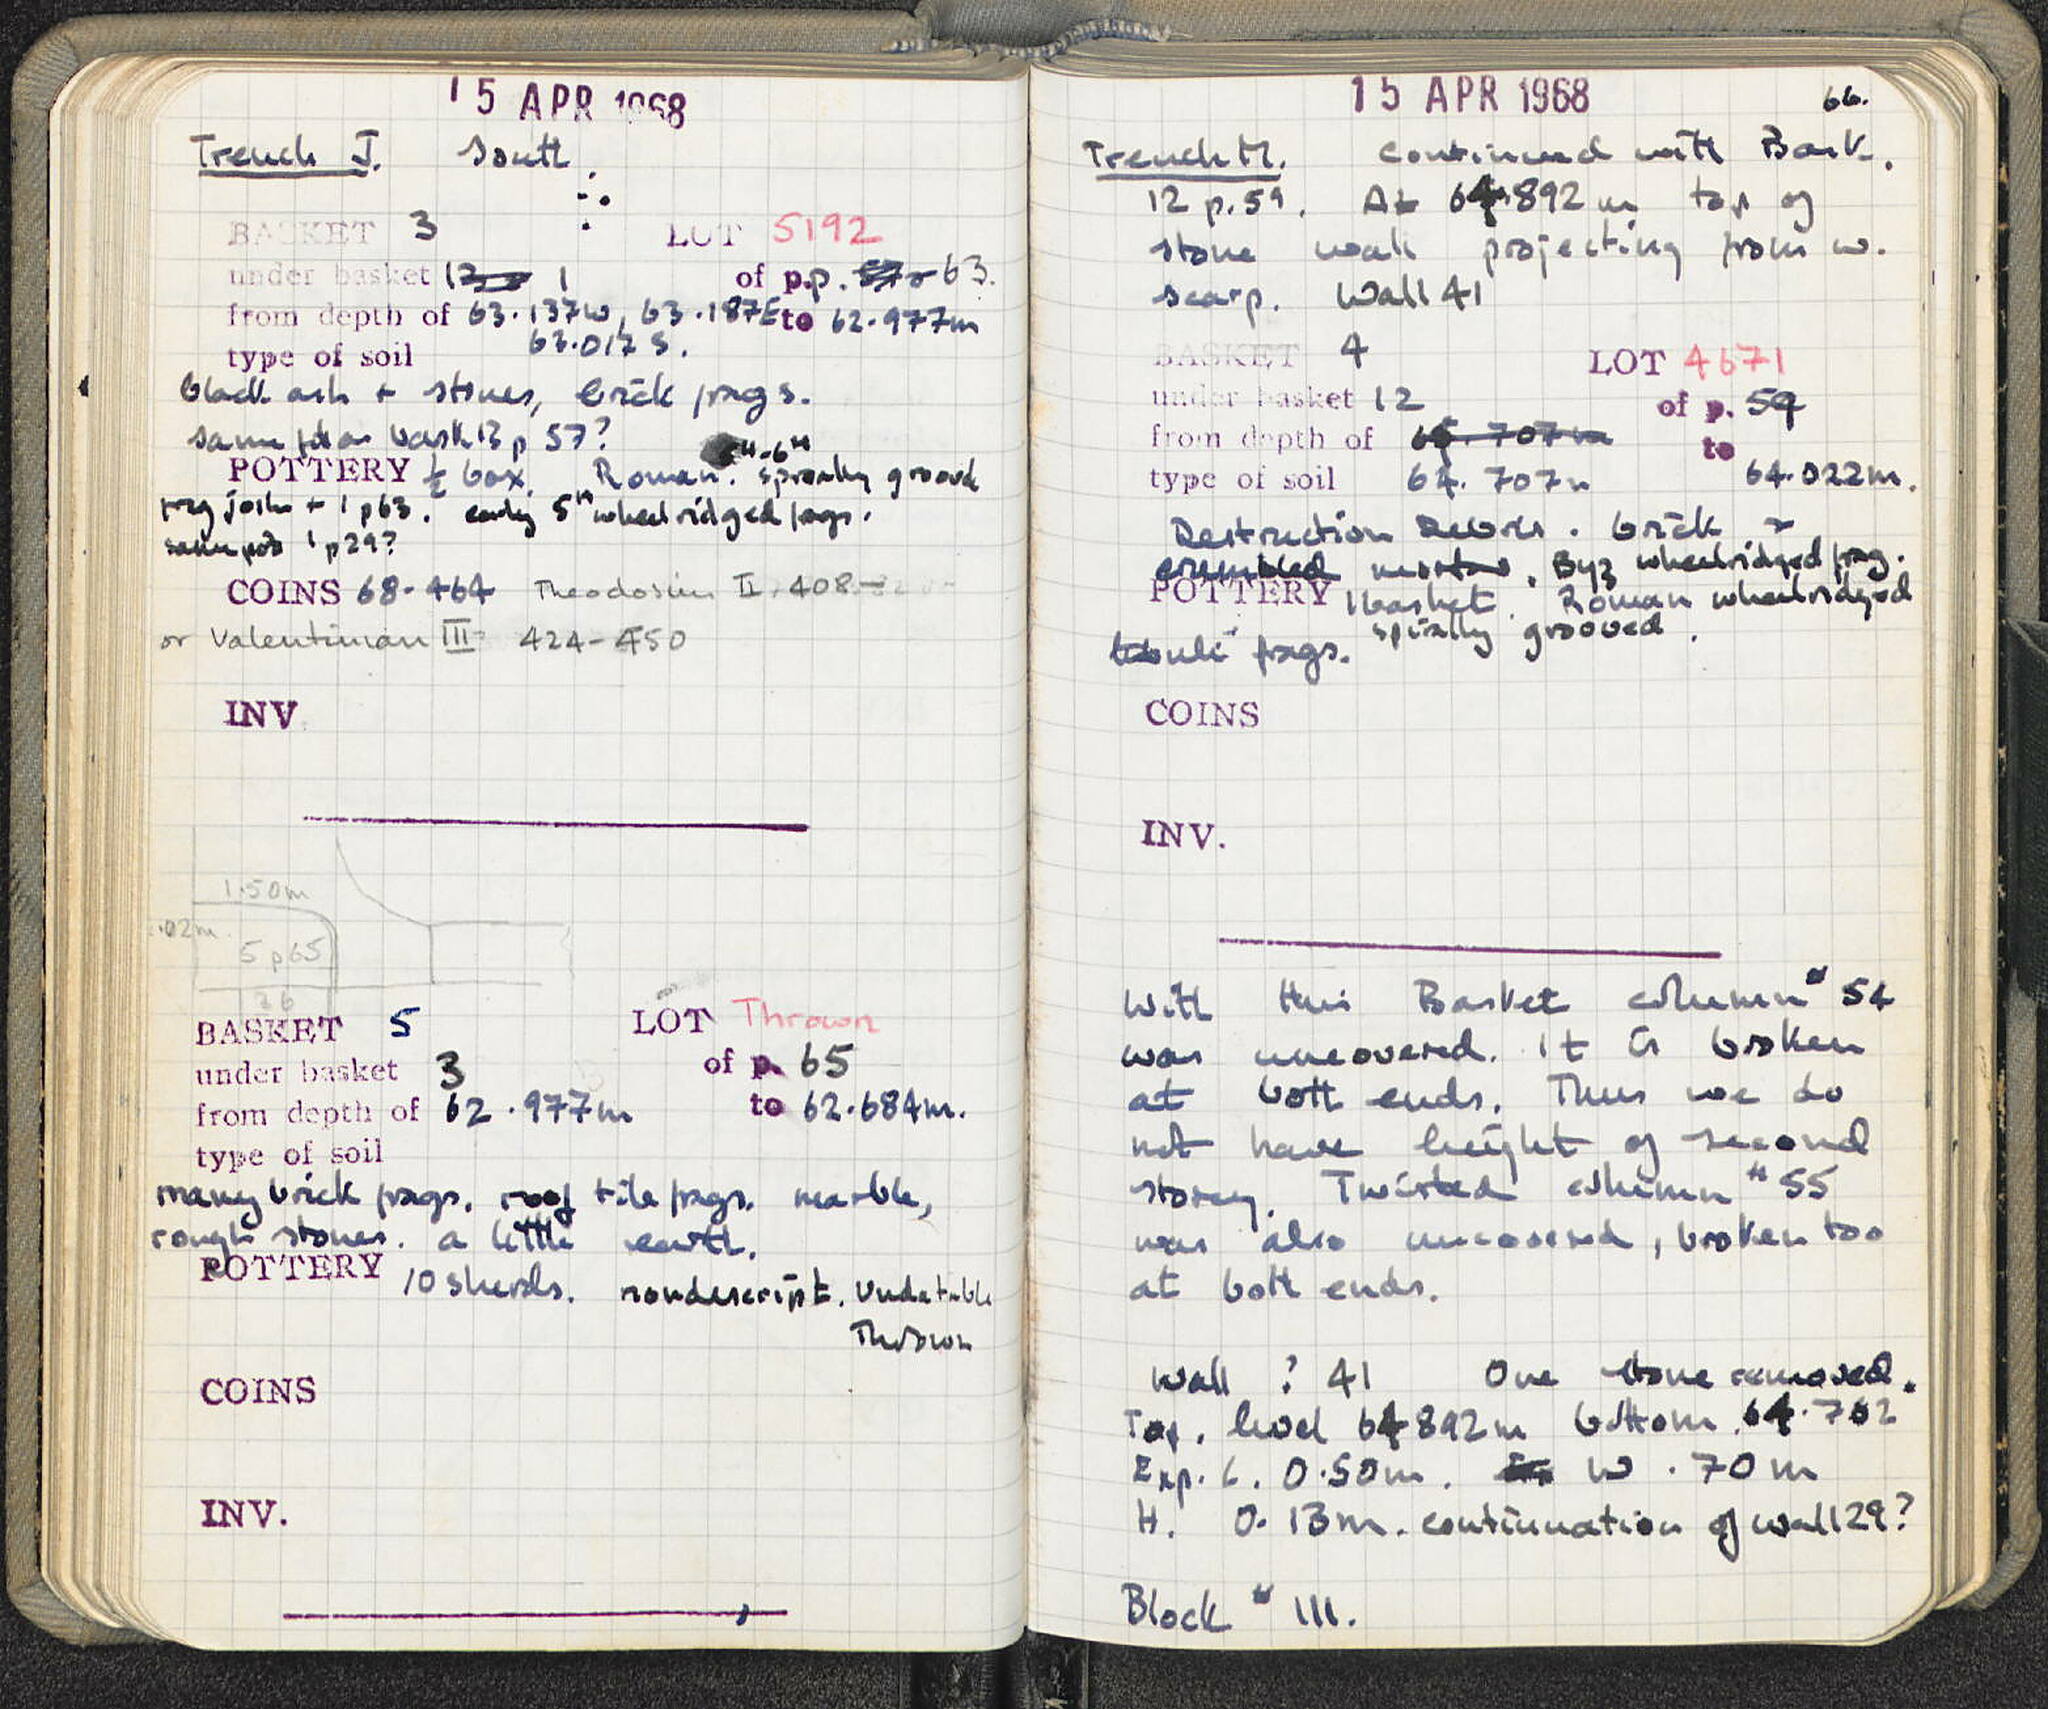 15 APR 1968
Trench J. South
BASKET 3 LOT 5192
under basket 1
of p.p. 63.
from depth of 63.137W, 63.187E to 62.977m
63.017 S.
type of soil
black ash + stones, brick frags.
same as bask 13 p 57?
POTTERY ½ box. Roman. -6" spirally grooved
frag joins + 1 p63. early 5" wheelridged frags.
same pot 1 p29?
COINS 68-464 Theodosius II 408-
or Valentinian III 424-450
INV.
1.50m
.02m.
5 p65
26
BASKET 5 LOT Thrown
under basket 3 of p. 65
from depth of 62.977m to 62.684m.
type of soil
many brick frags. roof tile frags. marble,
rough stones. a little earth.
POTTERY 10 sherds. nondescript. Undatable
Thrown
COINS
INV.
15 APR 1968
66.
Trench M. Continued with Bask.
12 p.59. At 64.892m top of
stone wall projecting from w.
scarp. Wall 41
BASKET 4 LOT 4671
under basket 12 of p. 59
from depth of 65.707m to
type of soil 64.707m 64.022m.
Destruction debris. brick +
crumbled mortar. Byz wheelridged frag.
POTTERY 1 basket. Roman wheelridged
spirally grooved.
tubuli frags.
COINS
INV.
With this Basket column # 54
was uncovered. It is broken
at both ends. Thus we do
not have height of second
storey. Twisted column # 55
was also uncovered, broken too
at both ends.
Wall ? 41 One stone removed.
Top. level 64.892m bottom 64.762
Exp. L. 0.50m. W .70m
H. 0.13m. continuation of wall 29?
Block # 111.